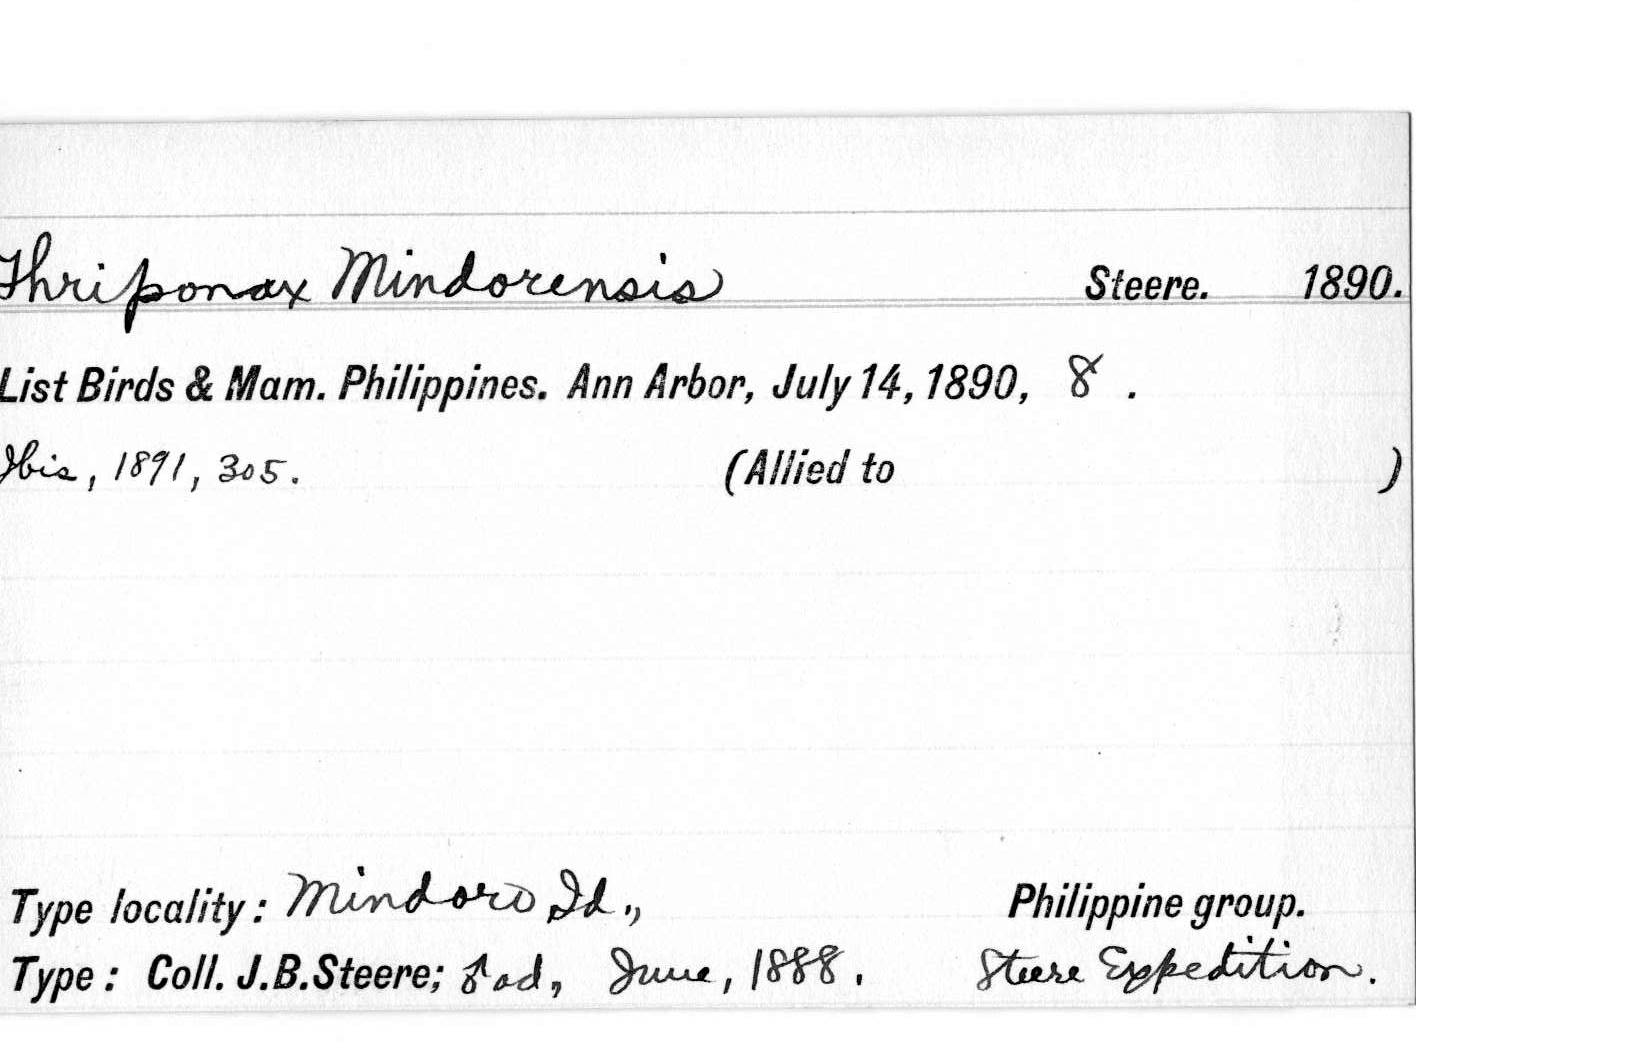 Thriponax Mindorensis Steere. 1890.
List Birds & Mam. Philippines. Ann Arbor, July 14, 1890, 8 .
Ibis, 1891, 305. (Allied to )
Type locality: Mindoro Id., Philippine group.
Type: Coll. J.B.Steere; ♂ ad, June, 1888. Steere Expedition.